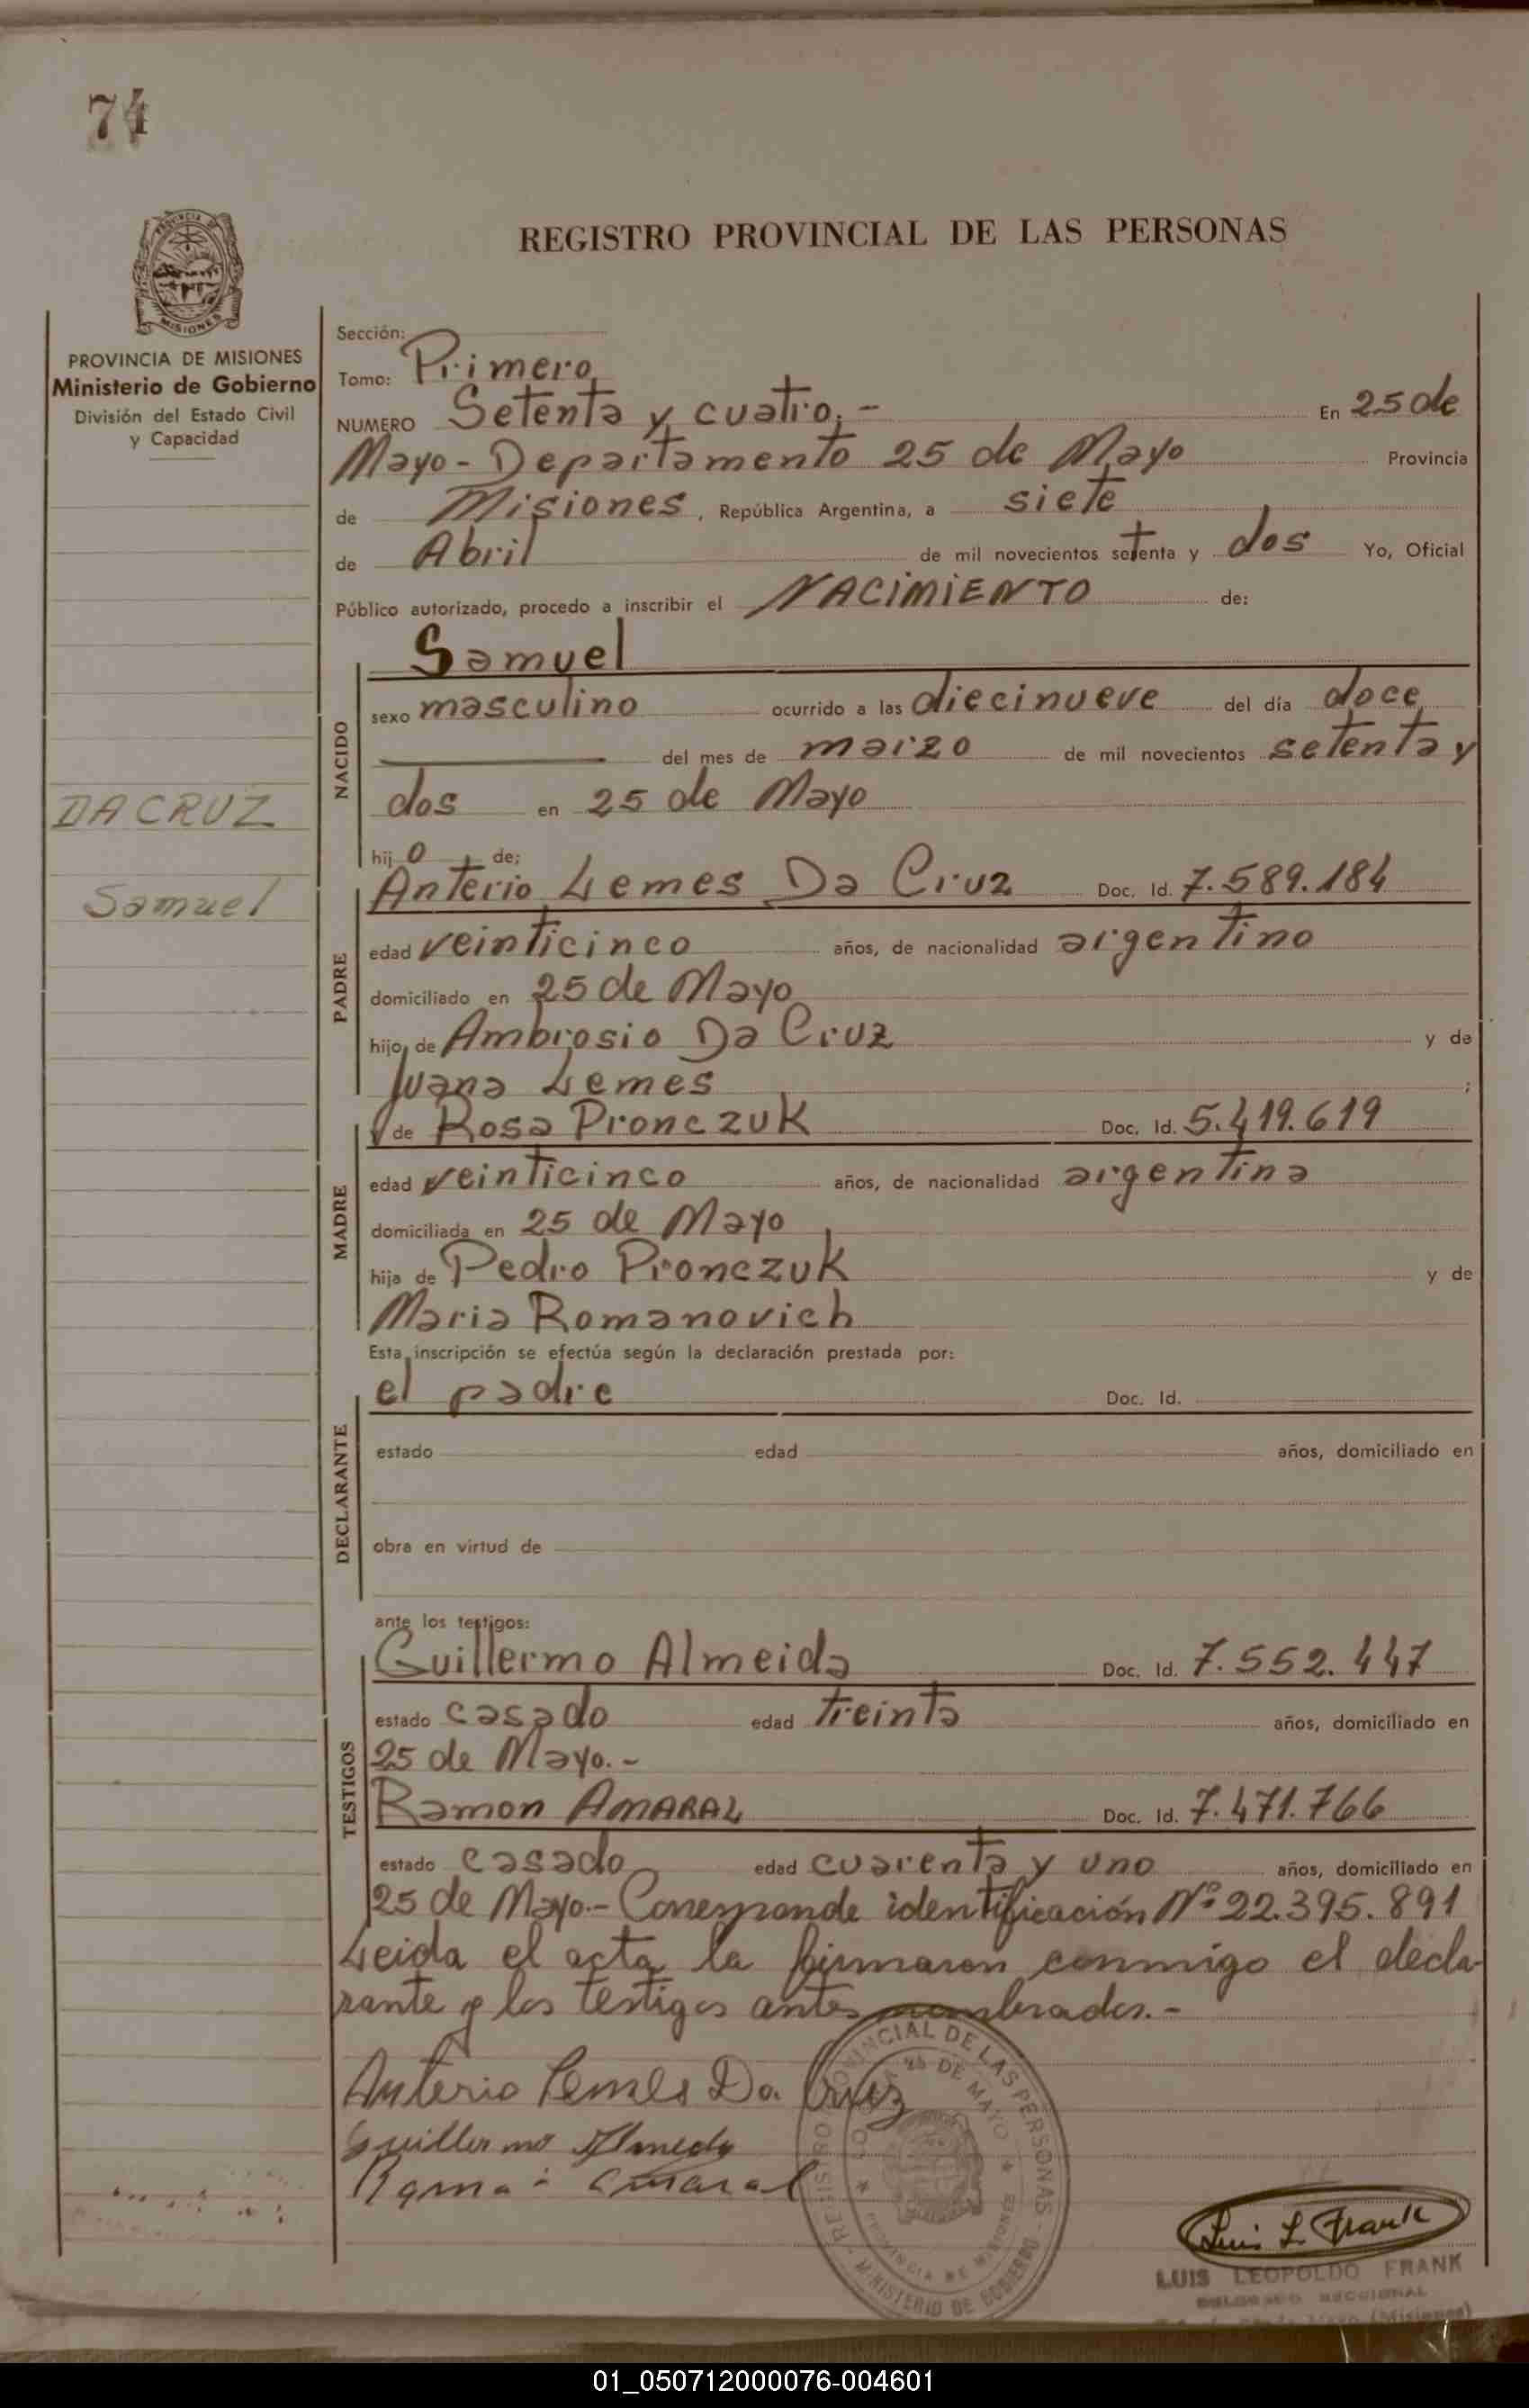 74
PROVINCIA DE MISIONES
PROVINCIA DE MISIONES
Ministerio de Gobierno
División del Estado Civil
y Capacidad
DA CRUZ
Samuel
REGISTRO PROVINCIAL DE LAS PERSONAS
Sección:
Tomo: Primero
NUMERO Setenta y cuatro.- En 25 de
Mayo - Departamento 25 de Mayo Provincia
de Misiones, República Argentina, a siete
de Abril de mil novecientos setenta y dos Yo, Oficial
Público autorizado, procedo a inscribir el NACIMIENTO de:
Samuel
NACIDO
sexo masculino ocurrido a las diecinueve del día doce
del mes de marzo de mil novecientos setenta y
dos en 25 de Mayo
hijo de:
Anterio Lemes Da Cruz Doc. Id. 7.589.184
PADRE
edad veinticinco años, de nacionalidad argentino
domiciliado en 25 de Mayo
hijo de Ambrosio Da Cruz y de
Juana Lemes ;
y de Rosa Pronczuk Doc. Id. 5.419.619
MADRE
edad veinticinco años, de nacionalidad argentina
domiciliada en 25 de Mayo
hija de Pedro Pronczuk y de
Maria Romanovich
Esta inscripción se efectúa según la declaración prestada por:
el padre Doc. Id.
DECLARANTE
estado edad años, domiciliado en
obra en virtud de
ante los testigos:
Guillermo Almeida Doc. Id. 7.552.447
TESTIGOS
estado casado edad treinta años, domiciliado en
25 de Mayo.-
Ramon AMARAL Doc. Id. 7.471.766
estado casado edad cuarenta y uno años, domiciliado en
25 de Mayo.- Corresponde identificación Nº 22.395.891
Leida el acta la firmaron conmigo el decla-
rante y los testigos antes nombrados.-
Anterio Lemes Da Cruz
Guillermo Almeida
Ramon Amaral
REGISTRO PROVINCIAL DE LAS PERSONAS - MINISTERIO DE GOBIERNO
25 DE MAYO
PROVINCIA DE MISIONES
Luis L. Frank
LUIS LEOPOLDO FRANK
DELEGADO SECCIONAL
(Misiones)
01_050712000076-004601